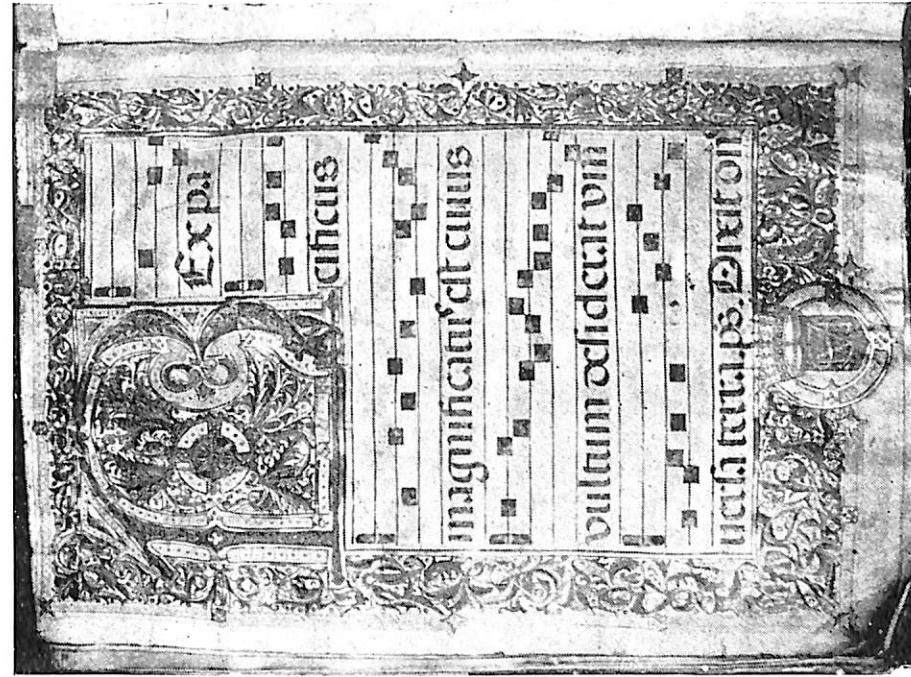 REx pa
cificus
magnificatus est cuius
vultum desiderat vni
uersa terra. ps. Dixit